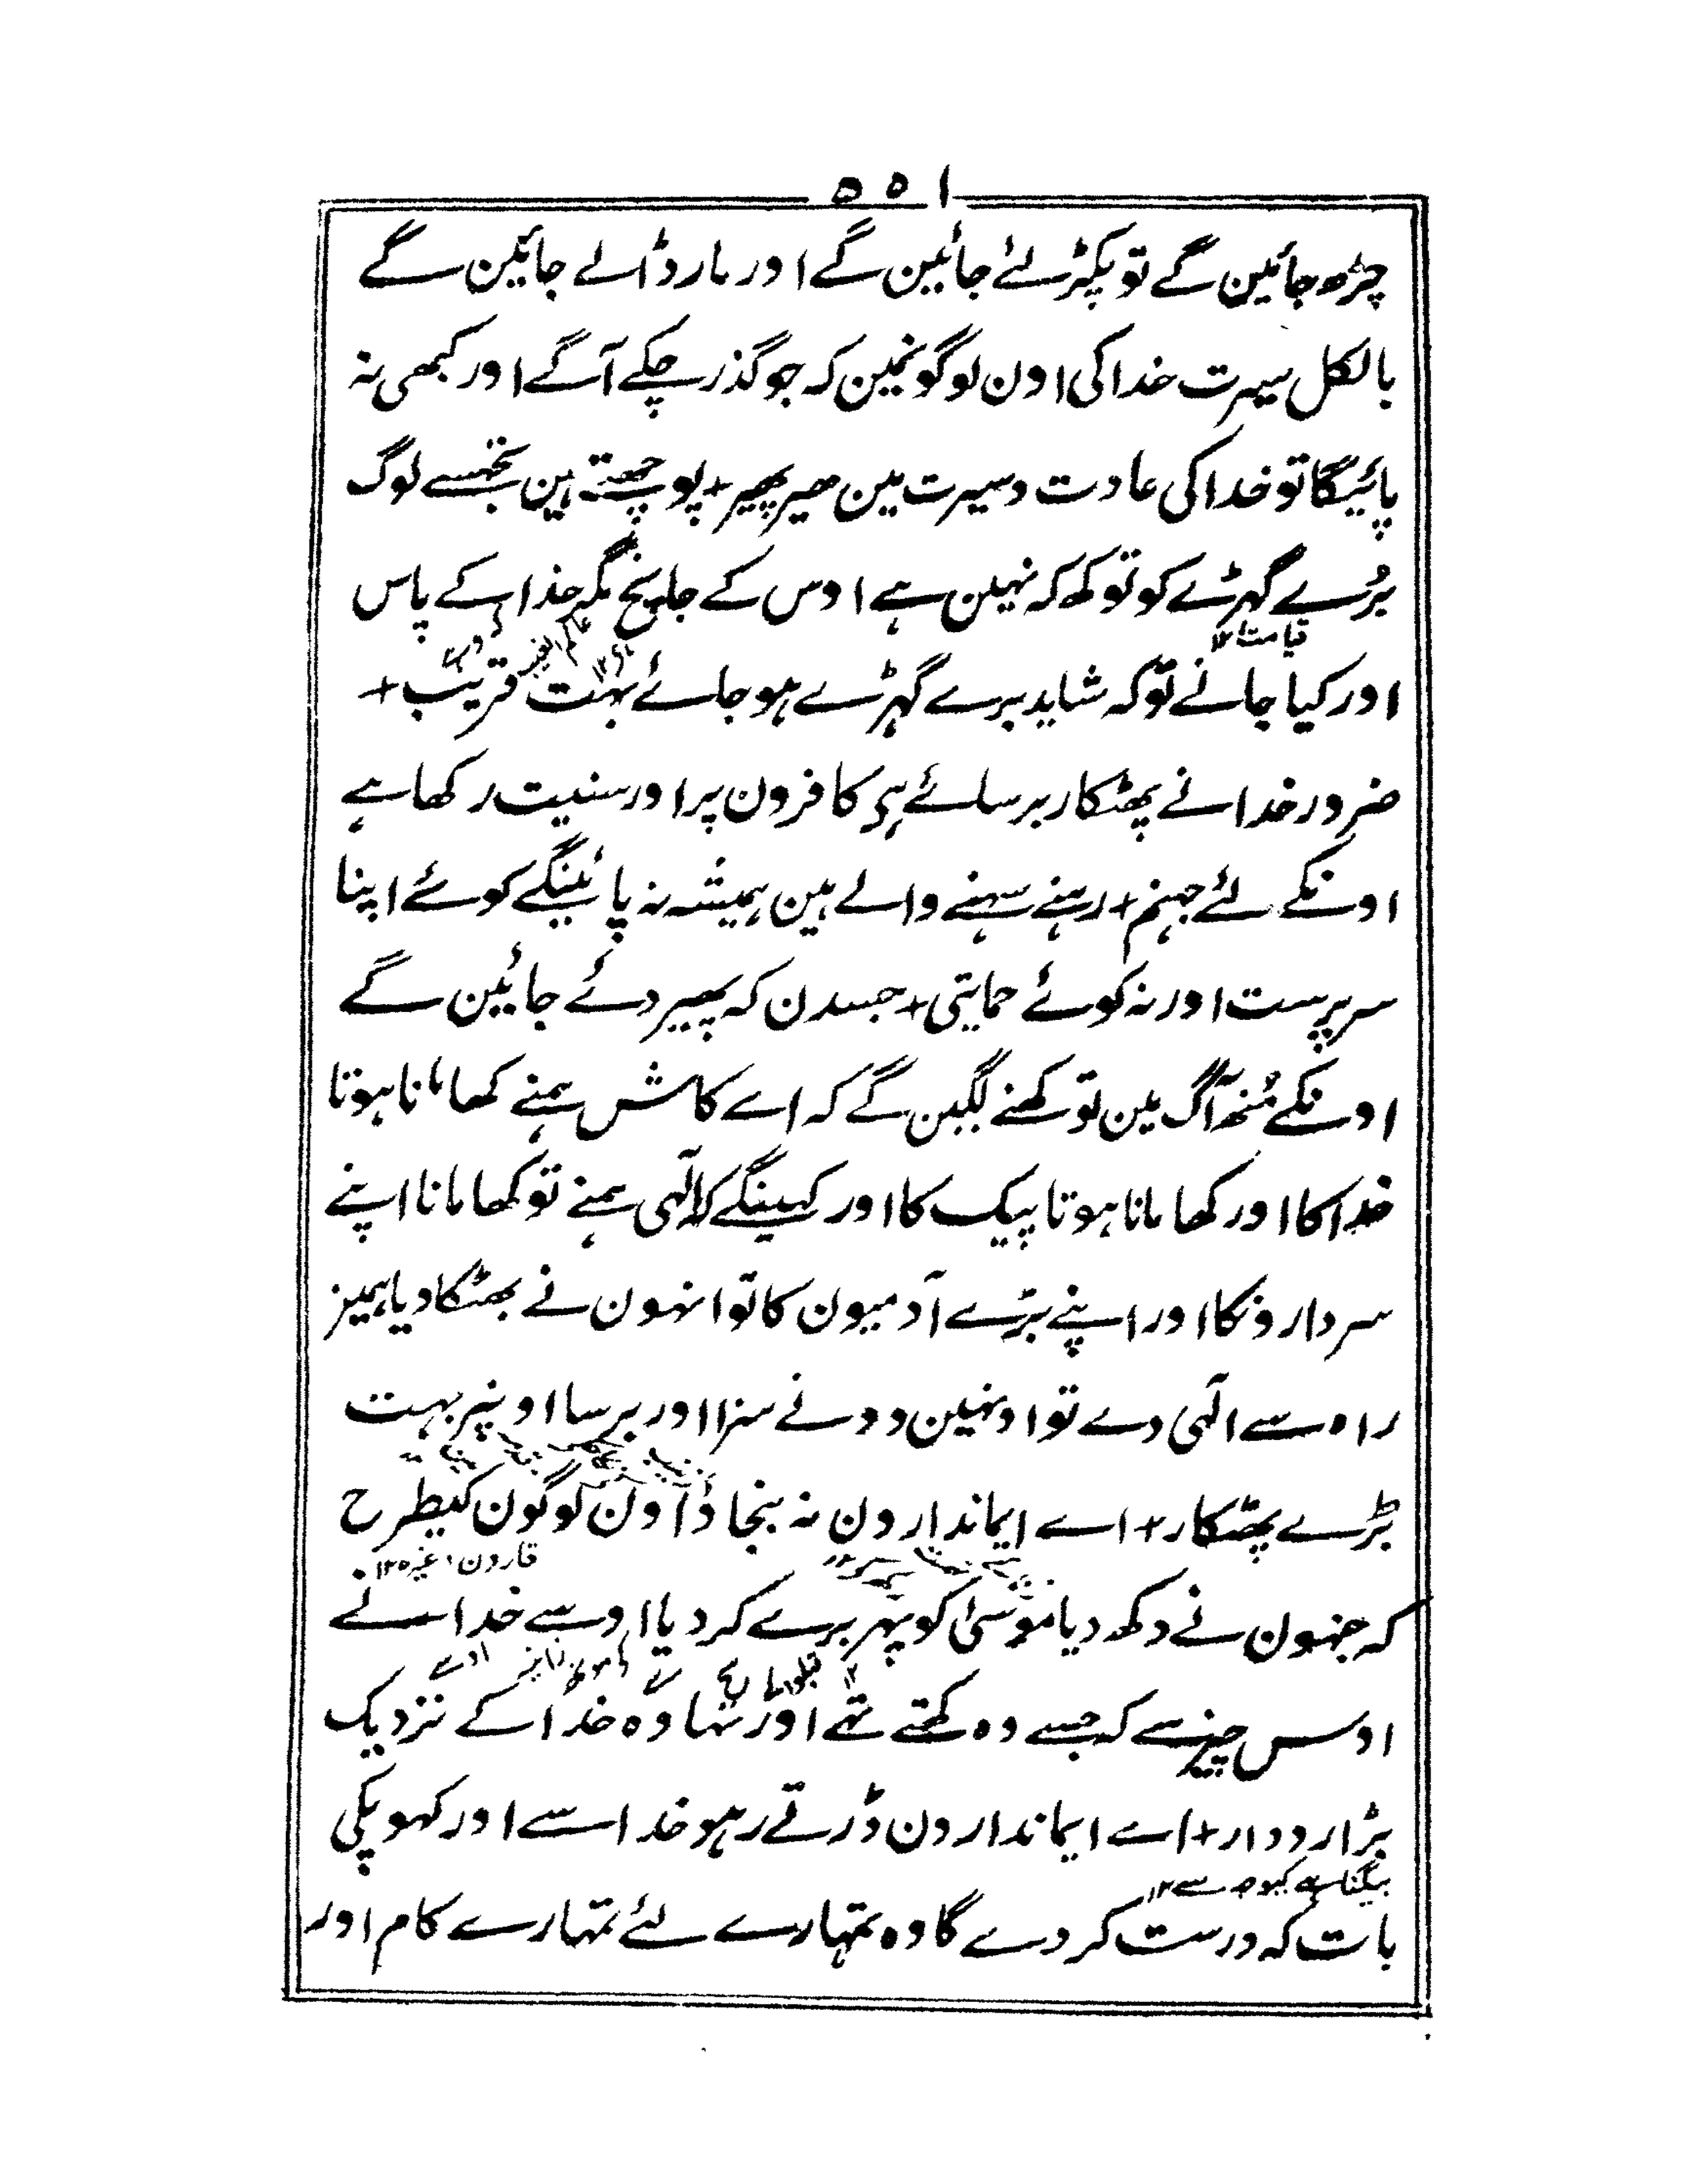 ۵۵۱
چڑھ جائین گے تو پکڑ لئے جائین گے اور مارڈالے جائین گے
بالکل سیرت خدا کی اون لوگونمین کہ جو گذر چکے آگے اور کبھی نہ
پائیگا تو خدا کی عادت وسیرت مین ھیر پھیر + پوچھتے ہین تجھسے لوگ
بُرے گہڑے کو تو کھ کہ نہین ہے اوس کے جانچ مگر خدا کے پاس
قیامت ۱۲
اور کیا جانے تو کہ شاید برے گہڑے ہو جائے بہت قریب +
ضرور خدا نے پھٹکار برسائے ہی کافرون پر اور سنیت رکھا ہے
اونکے لئے جہنم + رہنے سہنے والے ہین ہمیشہ نہ پائینگے کوئے اپنا
سرپرست اور نہ کوئے حمایتی + جسدن کہ پھیر دئے جائین گے
اونکے مُنھ آگ مین تو کھنے لگین گے کہ اے کاش ہمنے کھا مانا ہوتا
خدا کا اور کھا مانا ہوتا پیک کا اور کہینگے کہ الٓہی ہمنے تو کھا مانا اپنے
سردارونکا اور اپنے بڑے آدمیون کا تو انہون نے بھٹکا دیا ہمین
راہ سے الٓہی دے تو اونہین دونے سزا اور برسا اونپر بہت
بڑے پھٹکار + اے ایماندارون نہ بنجاؤ اون لوگون کیطرح
قارون وغیرہ ۱۲
کہ جنہون نے دکھ دیا موسیٰ کو پہر برے کر دیا اوسے خدا نے
اوس چیز سے کہ جسے وہ کھتے تھے اور تہا وہ خدا کے نزدیک
بڑا رودار + اے ایماندارون ڈرتے رہو خدا سے اور کہو پکی
بات کہ درست کر دے گا وہ تمہارے لئے تمہارے کام اور